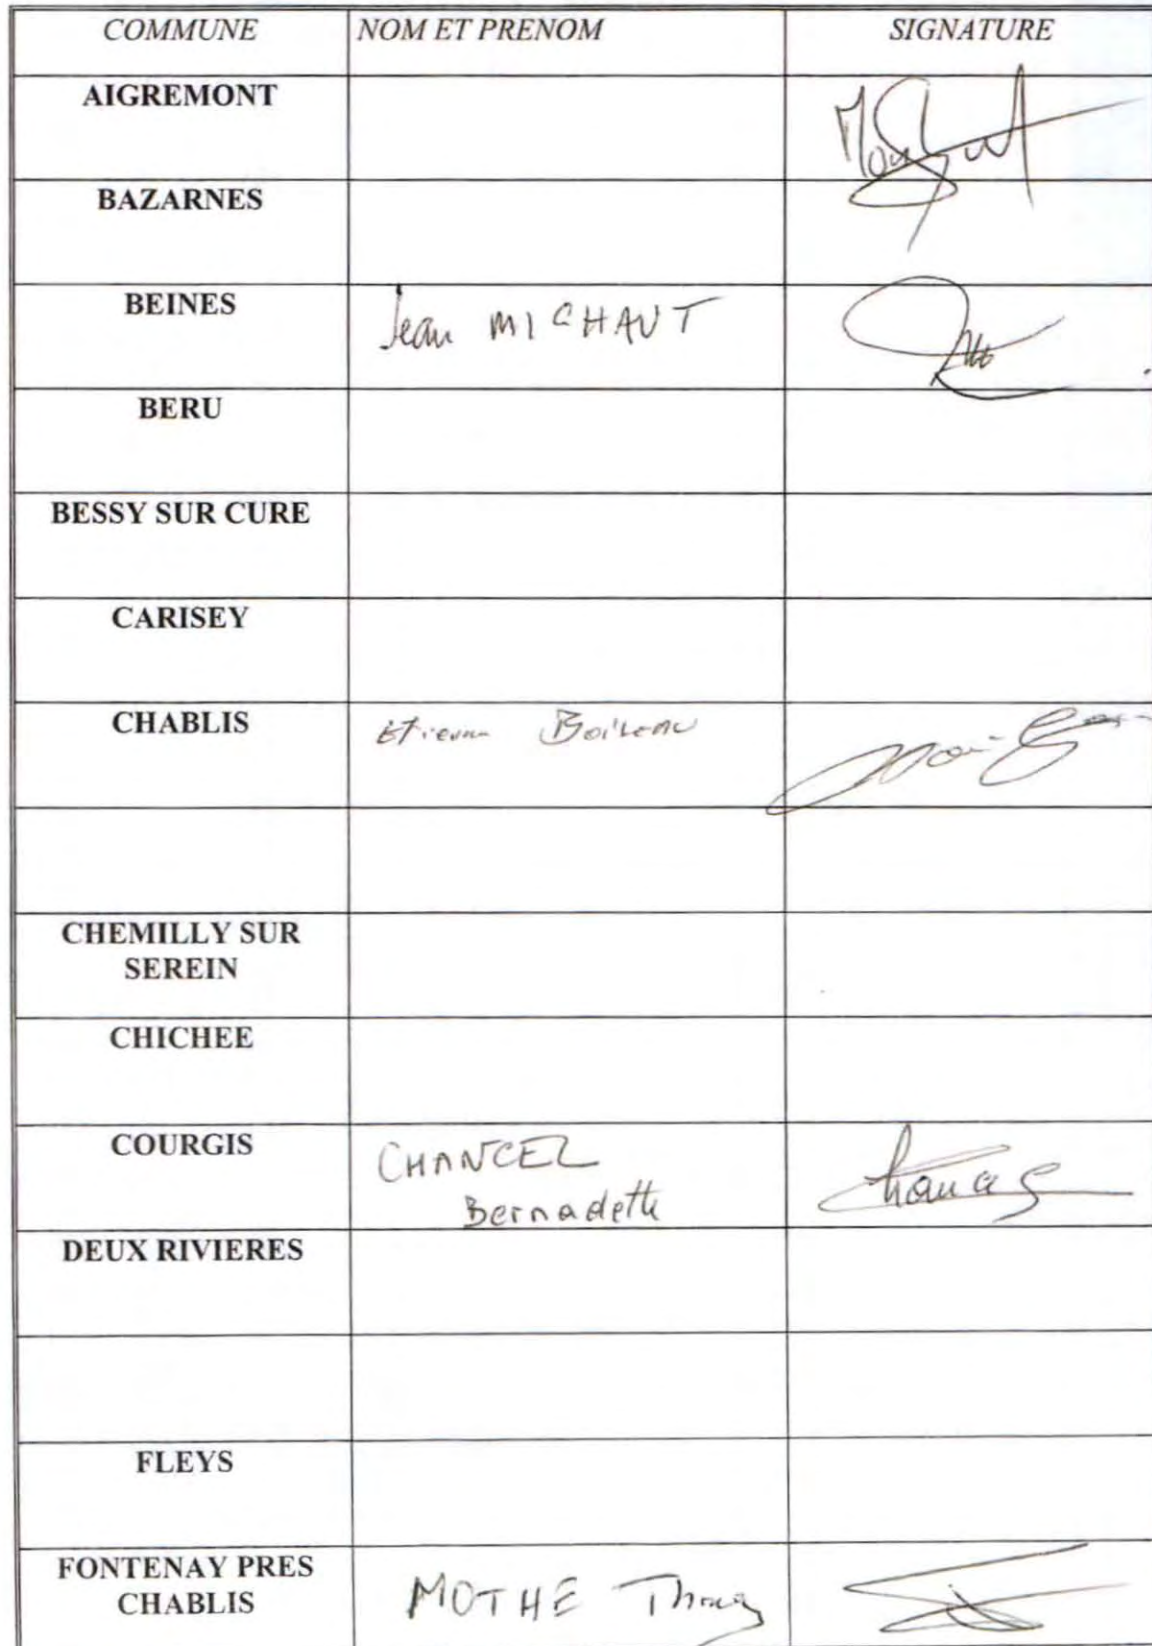 COMMUNE NOM ET PRENOM SIGNATURE
AIGREMONT
BAZARNES
BEINES Jean MICHAUT
BERU
BESSY SUR CURE
CARISEY
CHABLIS Etienne Boileau
CHEMILLY SUR
SEREIN
CHICHEE
COURGIS CHANCEL
Bernadette
DEUX RIVIERES
FLEYS
FONTENAY PRES
CHABLIS MOTHE Thomas